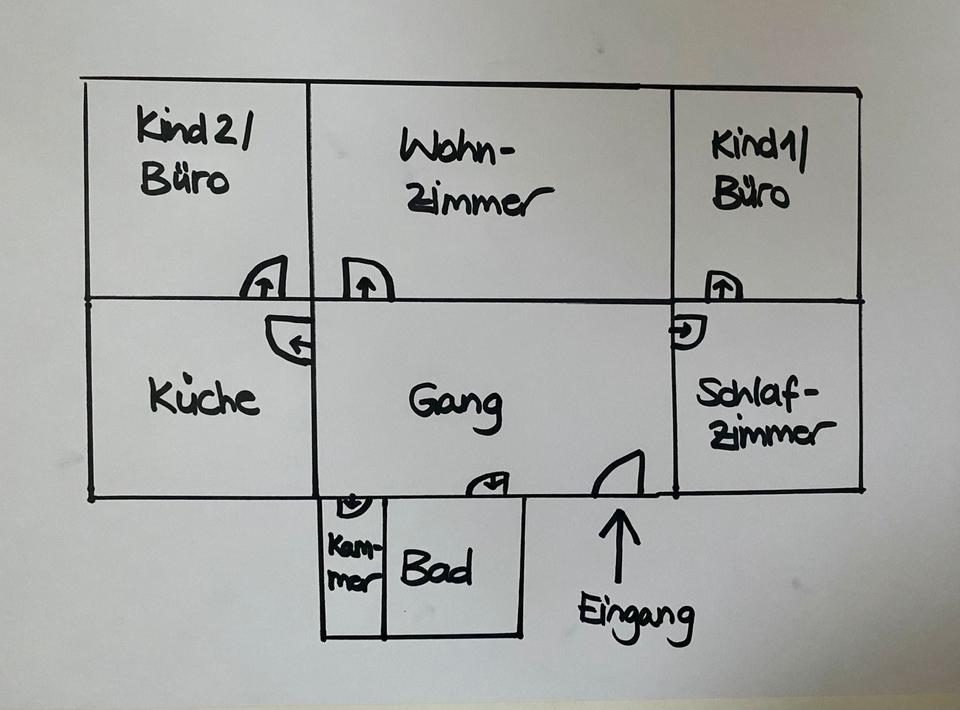 Kind 2/
Büro
Wohn-
zimmer
Kind 1/
Büro
Küche
Gang
Schlaf-
zimmer
Kam-
mer
Bad
Eingang